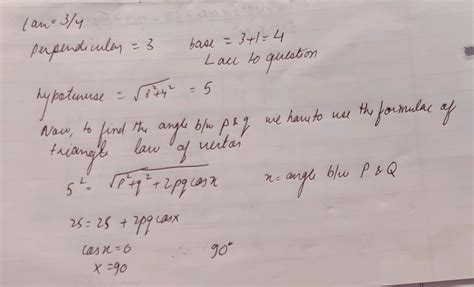 tan = 3/4
perpendicular = 3 base = 3+1 = 4
L acc to question
hypotenuse = √3²+4² = 5
Now, to find the angle b/w p & q we have to use the formulae of
triangle law of vector
5² = √p²+q² + 2pq cosx x = angle b/w P & Q
25 = 25 + 2pq cosx
cosx = 0 ∴ 90°
x = 90